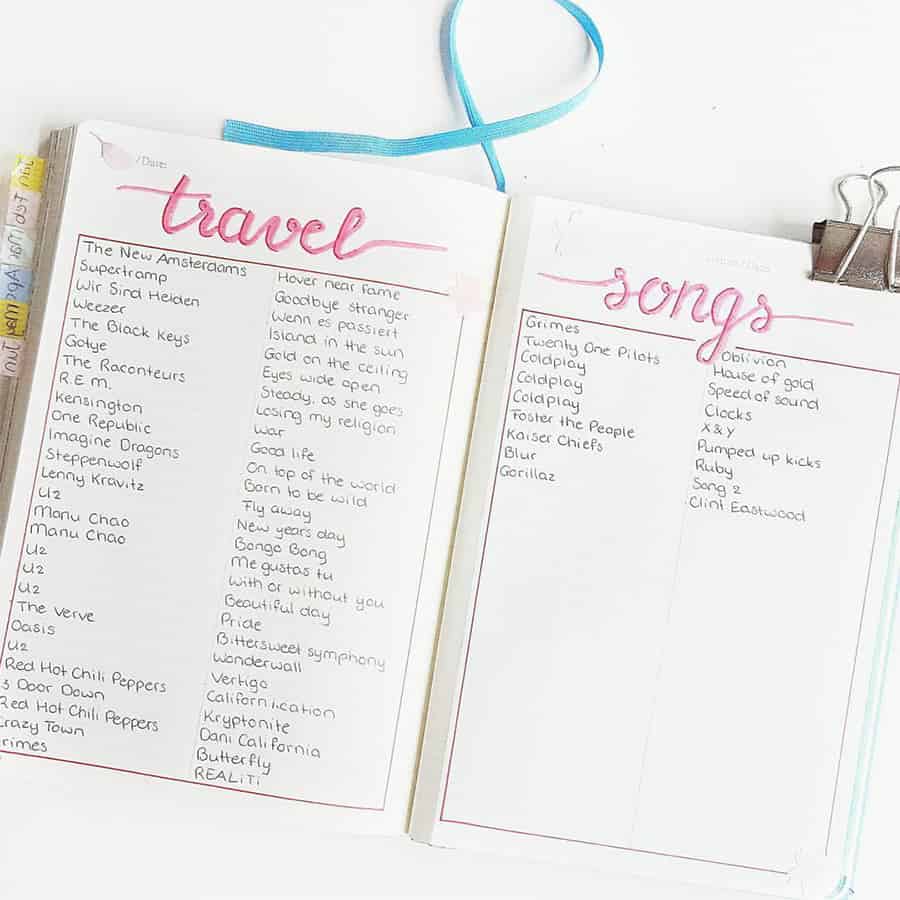 Jan
Feb
Mar
Apr
May
Jun
/Date:
travel
The New Amsterdams Hover near fame
Supertramp Goodbye stranger
Wir Sind Helden Wenn es passiert
Weezer Island in the sun
The Black Keys Gold on the ceiling
Gotye Eyes wide open
The Raconteurs Steady, as she goes
R.E.M. Losing my religion
Kensington War
One Republic Good life
Imagine Dragons On top of the world
Steppenwolf Born to be wild
Lenny Kravitz Fly away
U2 New years day
Manu Chao Bongo Bong
Manu Chao Me gustas tu
U2 With or without you
U2 Beautiful day
U2 Pride
The Verve Bittersweet symphony
Oasis Wonderwall
U2 Vertigo
Red Hot Chili Peppers Californication
3 Door Down Kryptonite
Red Hot Chili Peppers Dani California
Crazy Town Butterfly
Grimes REALiTi
songs
Grimes Oblivion
Twenty One Pilots House of gold
Coldplay Speed of sound
Coldplay Clocks
Coldplay X&Y
Foster the People Pumped up kicks
Kaiser Chiefs Ruby
Blur Song 2
Gorillaz Clint Eastwood